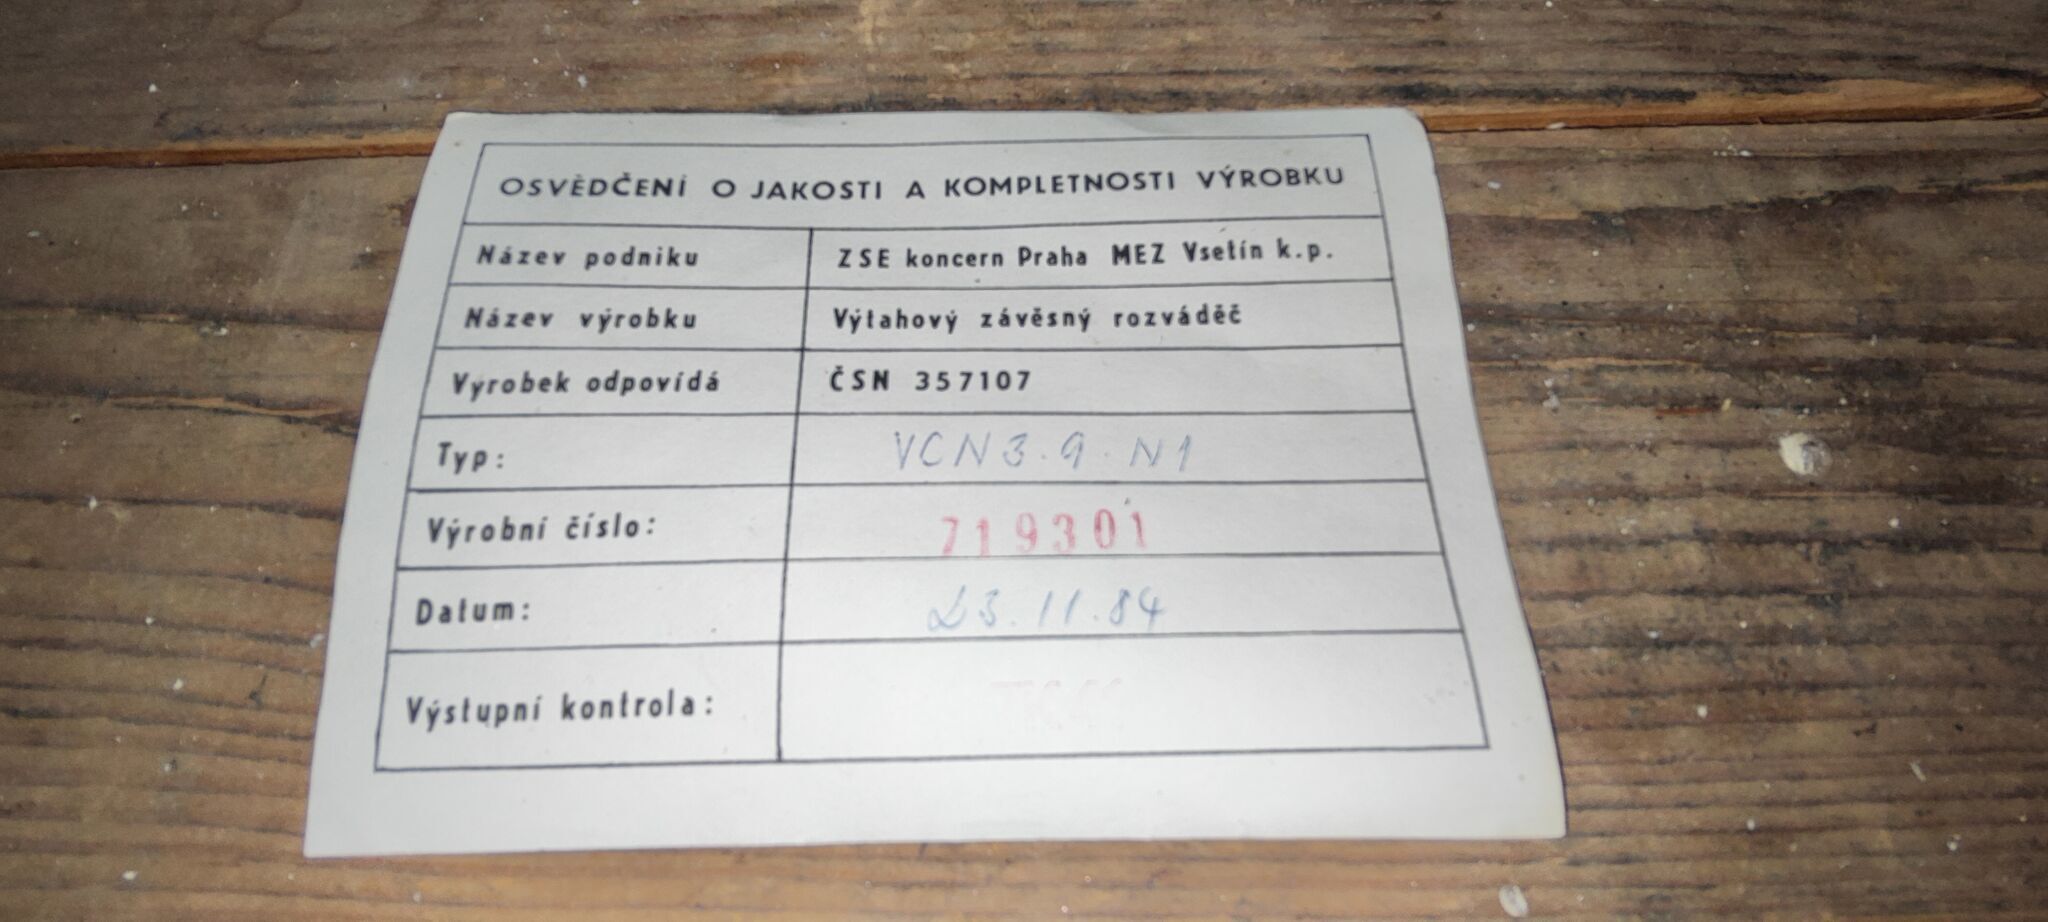 OSVĚDČENÍ O JAKOSTI A KOMPLETNOSTI VÝROBKU
Název podniku ZSE koncern Praha MEZ Vsetín k.p.
Název výrobku Výtahový závěsný rozváděč
Vyrobek odpovídá ČSN 357107
Typ: VCN3.9.N1
Výrobní číslo: 719301
Datum: 23.11.84
Výstupní kontrola: